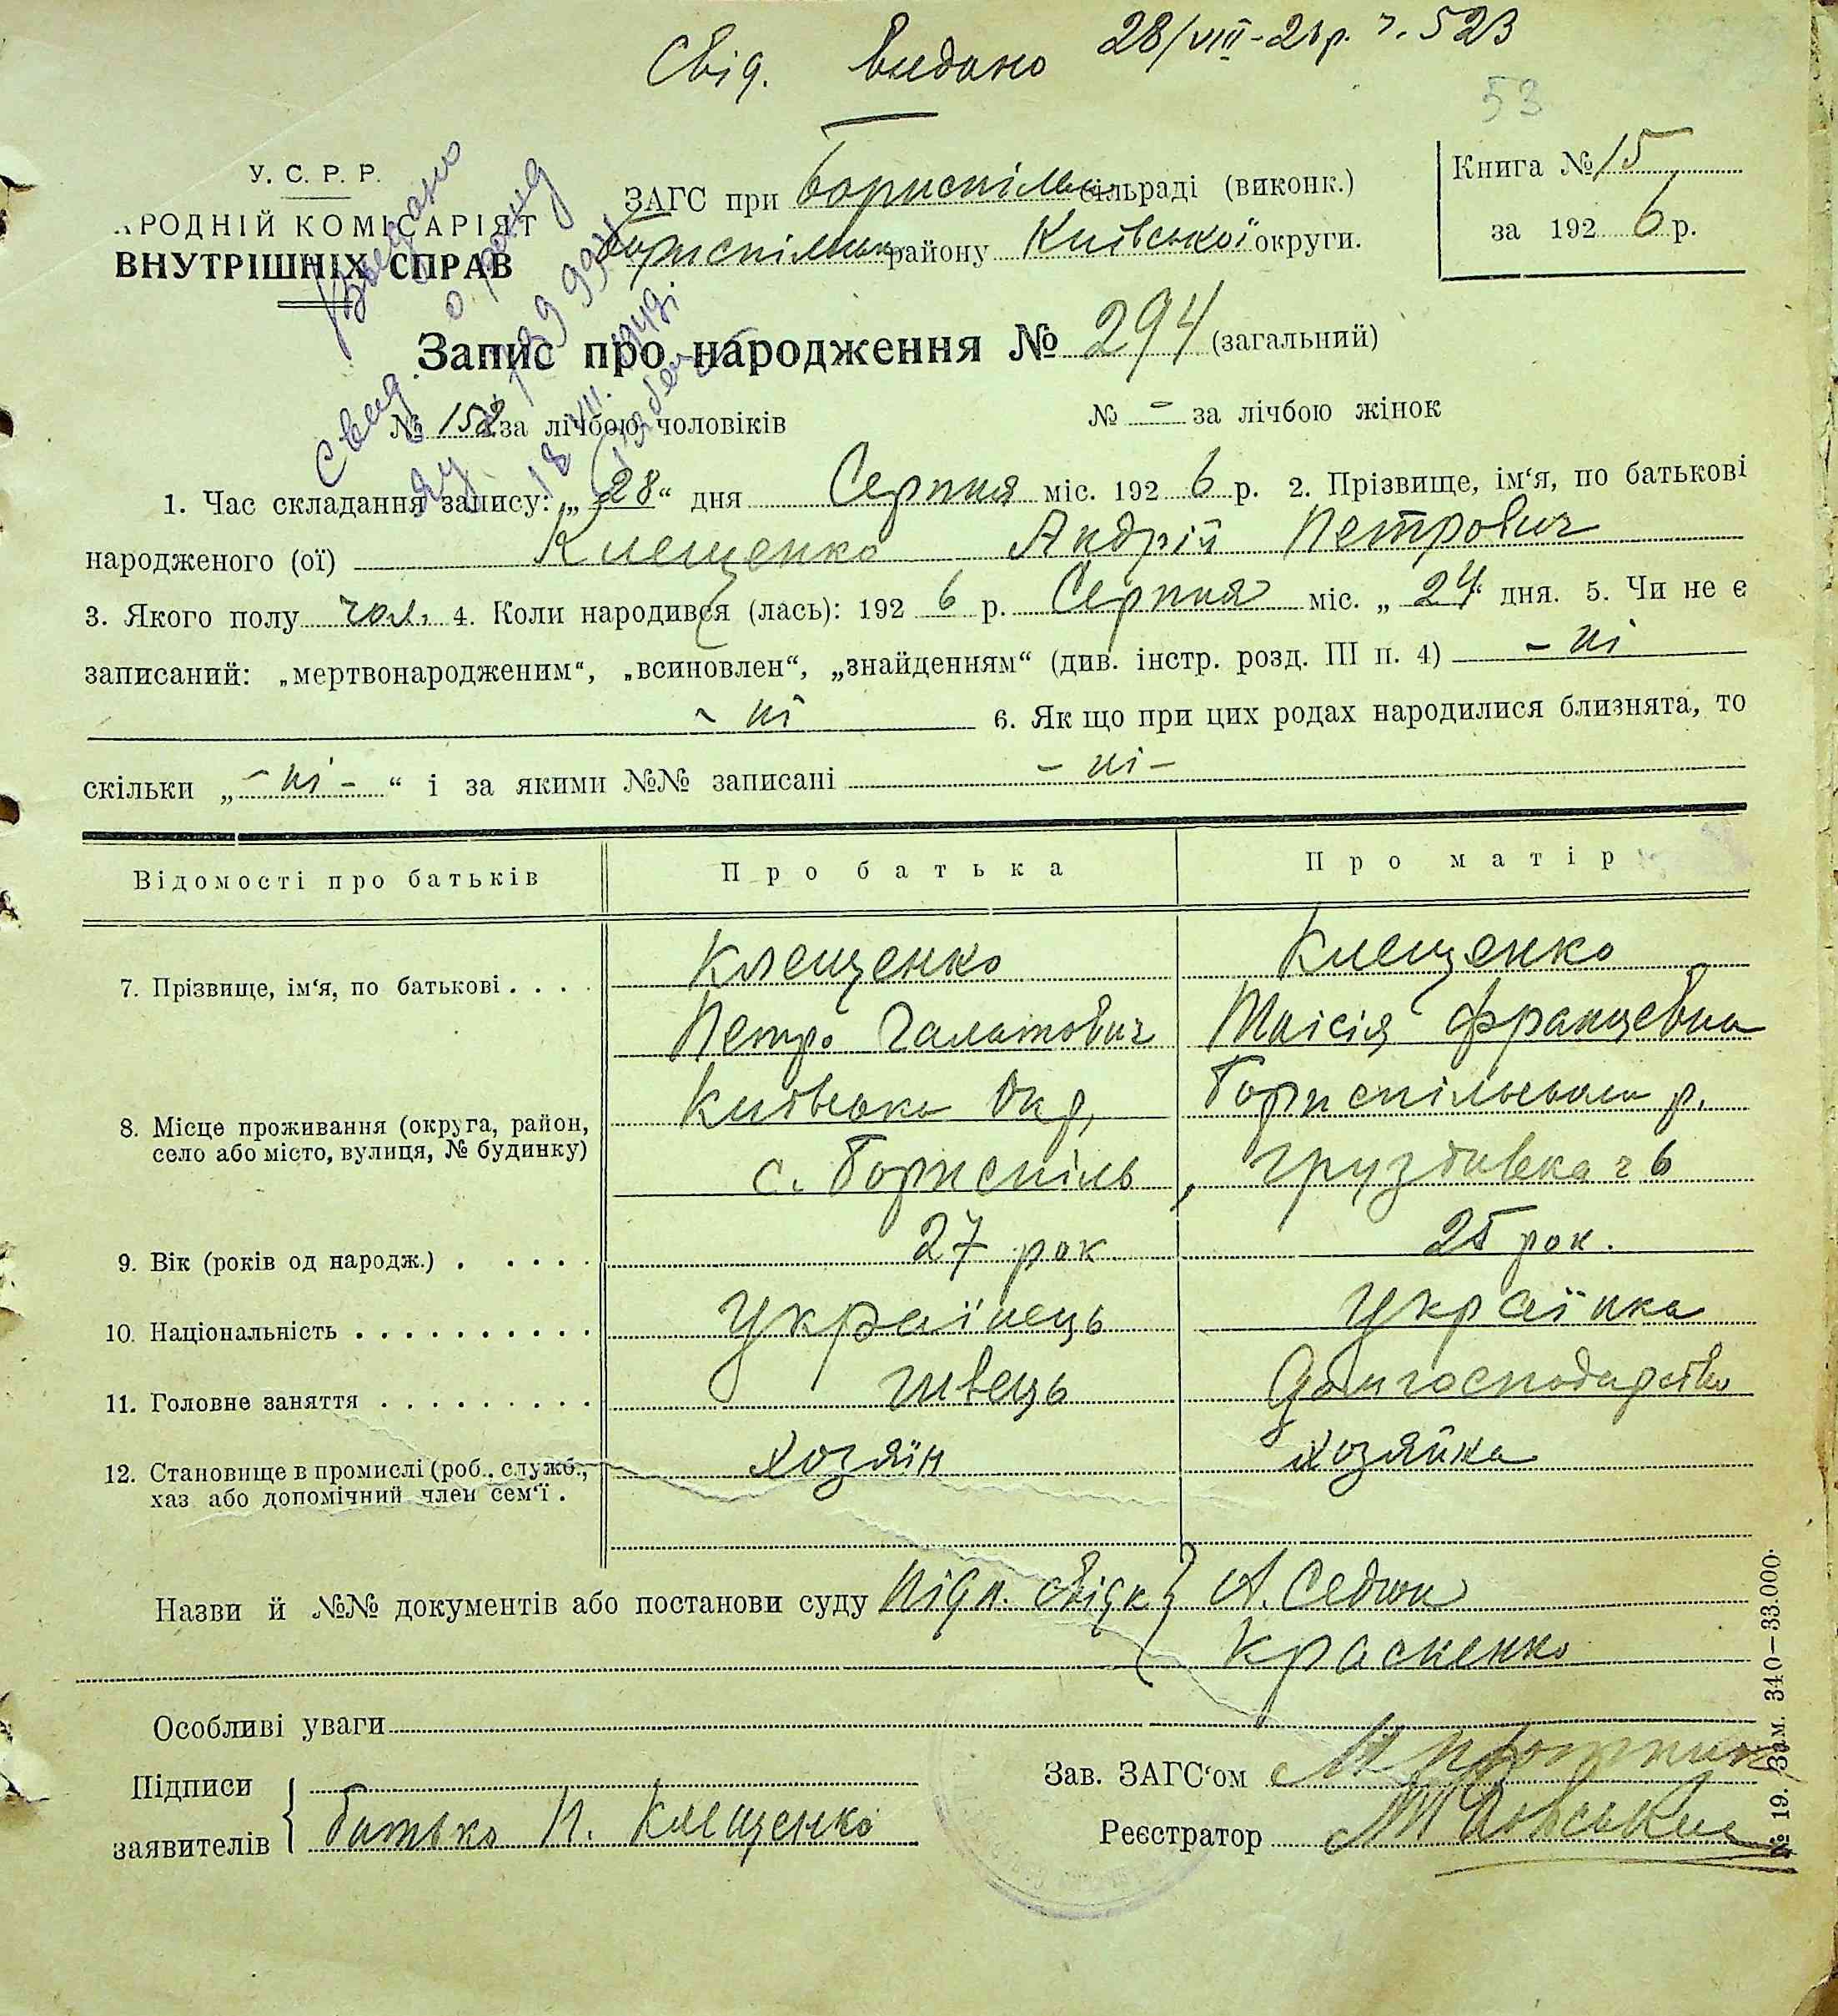 Свід. видано 28/VIII-26р. ч. 523
53
У. С. Р. Р.
АРОДНІЙ КОМІСАРІЯТ
ВНУТРІШНІХ СПРАВ
ЗАГС при Бориспільск сільраді (виконк.)
Бориспільськ району Київської округи.
Книга № 15
за 1926 р.
Запис про народження № 294 (загальний)
№ 152 за лічбою чоловіків № – за лічбою жінок
1. Час складання запису: „28“ дня Серпня міс. 1926 р. 2. Прізвище, ім‘я, по батькові
народженого (ої) Клещенко Андрій Петрович
3. Якого полу чол. 4. Коли народився (лась): 1926 р. Серпня міс. „24“ дня. 5. Чи не є
записаний: „мертвонародженим“, „всиновлен“, „знайденням“ (див. інстр. розд. III п. 4) – ні
– ні 6. Як що при цих родах народилися близнята, то
скільки „– ні –“ і за якими №№ записані – ні –
Відомості про батьків Про батька Про матір
7. Прізвище, ім‘я, по батькові . . . . Клещенко Клещенко
Петро Галатович Таісія Францевна
8. Місце проживання (округа, район, село або місто, вулиця, № будинку) Київська Окр, Бориспільського р.
с. Бориспіль,
9. Вік (років од народж.) . . . . . 27 рок 25 рок.
10. Національність . . . . . . . . . . Українець Українка
11. Головне заняття . . . . . . . . . швець Домгосподарство
12. Становище в промислі (роб., служб., хаз або допомічний член сем‘ї . хозяїн хозяйка
Назви й №№ документів або постанови суду Підп. свідк} А. Седюк
Красненко
Особливі уваги
Підписи
заявителів { батько П. Клещенко
Зав. ЗАГС‘ом
Реєстратор
№ 19. Зам. 340–33.000.